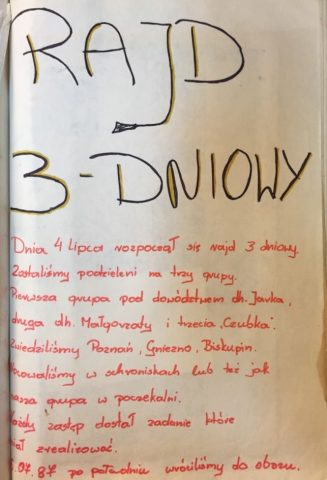 RAJD
3-DNIOWY
Dnia 4 Lipca rozpoczął się rajd 3 dniowy.
Zostaliśmy podzieleni na trzy grupy.
Pierwsza grupa pod dowództwem dh. Jawka,
druga dh. Małgorzaty i trzecia „Czubka".
Zwiedziliśmy Poznań, Gniezno, Biskupin.
Nocowaliśmy w schroniskach lub też jak
nasza grupa w poczekalni.
Każdy zastęp dostał zadanie które
miał zrealizować.
.07.87 po południu wróciliśmy do obozu.